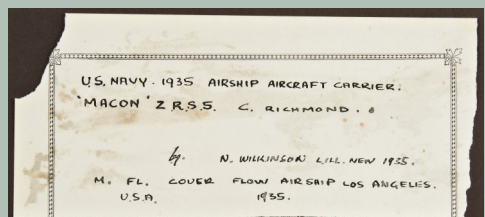 U.S. NAVY. 1935 AIRSHIP AIRCRAFT CARRIER.
'MACON' Z.R.S.5. C. RICHMOND.
by. N. WILKINSON LILL. NEW 1935.
M. FL. COVER FLOW AIRSHIP LOS ANGELES.
U.S.A. 1935.